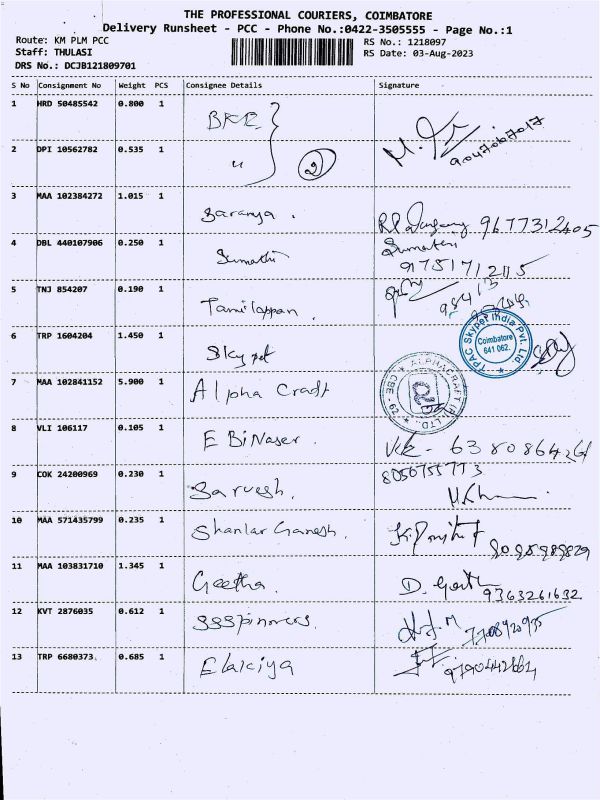 THE PROFESSIONAL COURIERS, COIMBATORE
Delivery Runsheet - PCC - Phone No.:0422-3505555 - Page No.:1
Route: KM PLM PCC
Staff: THULASI
DRS No.: DCJB121809701
RS No.: 1218097
RS Date: 03-Aug-2023
S No Consignment No Weight PCS Consignee Details Signature
1 HRD 50485542 0.800 1
2 DPI 10562782 0.535 1 " 2
3 MAA 102384272 1.015 1 Saranya. 9677312405
4 DBL 440107906 0.250 1 Sumathi Sumathi
9751712115
5 TNJ 854207 0.190 1 Tamilappan.
6 TRP 1604204 1.450 1 Skypet
TPAC Skypet India Pvt. Ltd
Coimbatore
641 062.
7 MAA 102841152 5.900 1 Alpha Cradt
8 VLI 106117 0.105 1 E BiNaser. 6380864261
9 COK 24200969 0.230 1 Sarvesh. 8050755773
10 MAA 571435799 0.235 1 Shanlar Ganesh.
11 MAA 103831710 1.345 1 Geetha. D. 9363261632
12 KVT 2876035 0.612 1
13 TRP 6680373 0.685 1 Elakiya